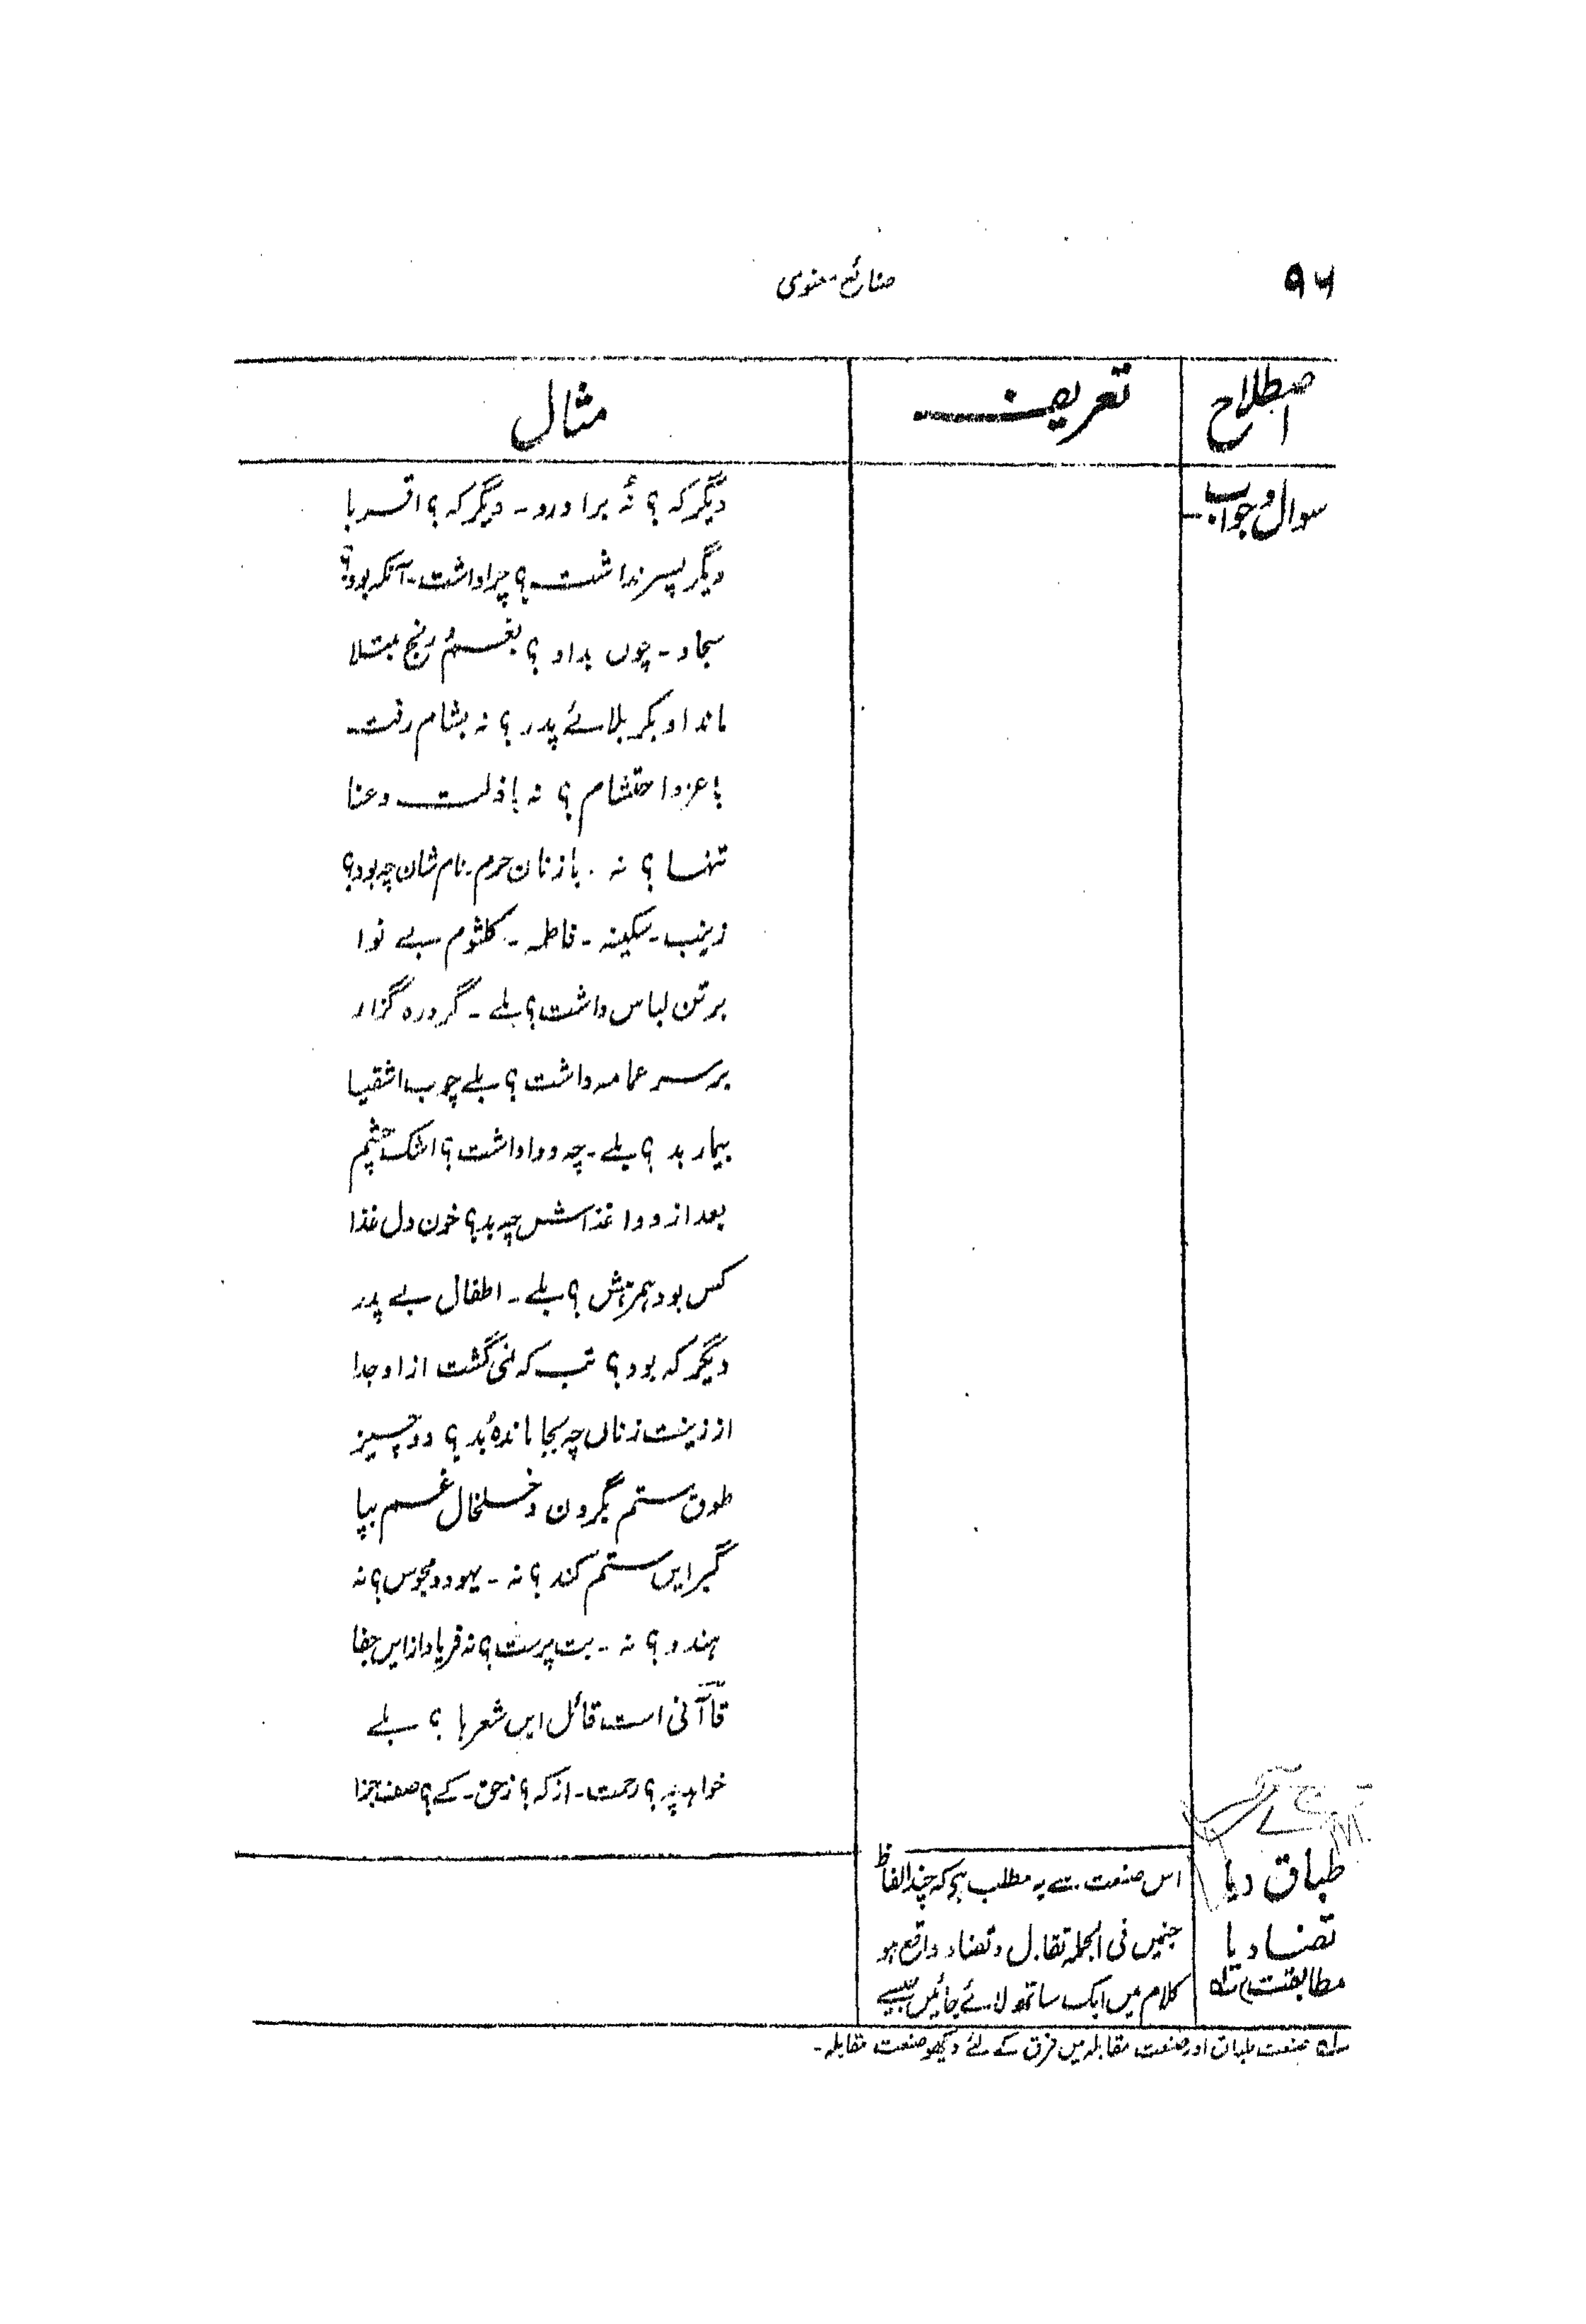 ۹۶
صنائع معنوی
اصطلاح
تعریف
مثال
سوال و جواب
دیگر که؟ نُه برادرو - دیگر که؟ اقربا
دیگر پسر نداشت؟ چرا داشت - آنکه بود؟
سجاد - چوں بد او؟ بغم و رنج مبتلا
ماند او بکربلائے پدر؟ نہ بشام رفت
باعز و احتشام؟ نہ با ذلت و عنا
تنہا؟ نہ. با زنان حرم - نام شان چہ بود؟
زینب - سکینہ - فاطمہ - کلثوم بے نوا
بر تن لباس داشت؟ بلے - گرد رہ گزار
بر سر عمامہ داشت؟ بلے چوب اشقیا
بیمار بد؟ بلے - چہ دوا داشت؟ اشک چشم
بعد از دوا غذاش چہ بد؟ خون دل غذا
کس بود ہمرہش؟ بلے - اطفال بے پدر
دیگر کہ بود؟ تب کہ نمی گشت از او جدا
از زینت زناں چہ بجا ماندہ بُد؟ دو چیز
طوق ستم بگردن و خلخال غم بپا
گبر ایں ستم کند؟ نہ - یہود و مجوس؟ نہ
ہندو؟ نہ - بت پرست؟ نہ فریاد از ایں جفا
قاآنی است قائل ایں شعرہا؟ بلے
خواہد چہ؟ رحمت - از کہ؟ زحق - کے؟ صف جزا
طباق دیا
تضاد یا
مطابقت
اس صنعت سے یہ مطلب ہے کہ چند الفاظ
جنمیں فی الجملہ تقابل و تضاد واقع ہو
کلام میں ایک ساتھ لائے جائیں جیسے
سلہ صنعت طباق اور صنعت مقابلہ میں فرق کے لئے دیکھو صنعت مقابلہ -